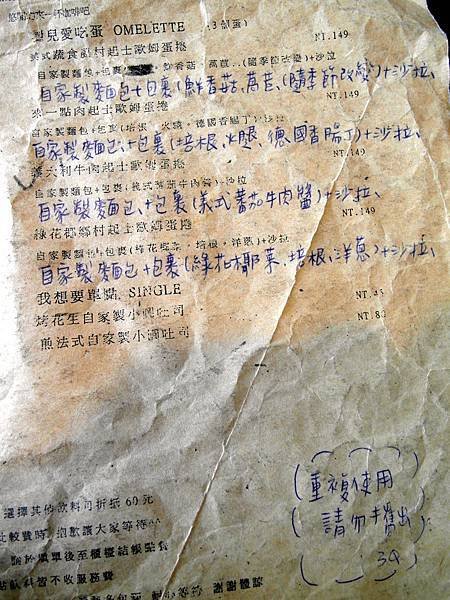 型兒愛吃蛋 OMELETTE (3顆蛋)
NT.149
美式蔬食鄉村起士歐姆蛋捲
自家製麵包+包裹 鮮香菇、萵苣..(隨季節改變)+沙拉
自家製麵包+包裹(鮮香菇、萵苣、(隨季節改變)+沙拉、
來一點肉起士歐姆蛋捲
NT.149
自家製麵包+包裹(培根、火腿、德國香腸丁)+沙拉
自家製麵包、+包裹(培根、火腿、德國香腸丁)+沙拉、
義大利牛肉起士歐姆蛋捲
NT.149
自家製麵包+包裹(義式蕃茄牛肉醬)+沙拉
自家製麵包、+包裹(義式蕃茄牛肉醬)+沙拉、
綠花椰鄉村起士歐姆蛋捲
NT.149
自家製麵包+包裹(綠花椰菜、培根、洋蔥)+沙拉
自家製麵包+包裹(綠花椰菜、培根、洋蔥)+沙拉、
我想要單點 SINGLE
烤花生自家製小圓吐司
NT.45
煎法式自家製小圓吐司
NT.80
重複使用
請勿攜出
選擇其他飲料可折抵 60元
比較費時，抱歉讓大家等待
請於填單後至櫃檯結帳點餐
點飲料皆不收服務費